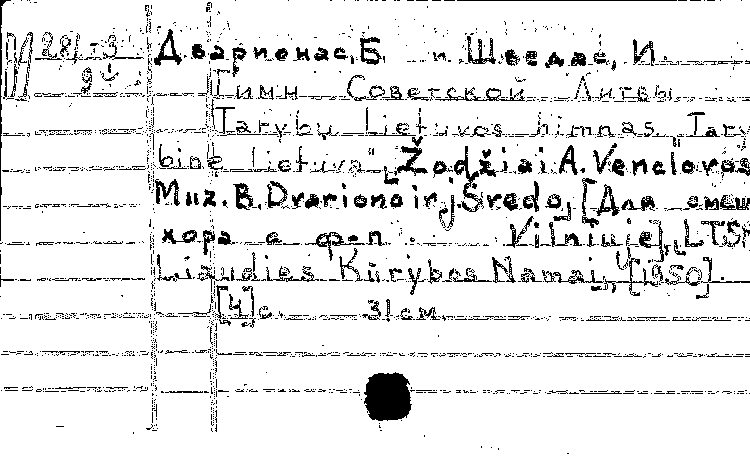 М 281-3
9
Дварионас, Б. и Шведас, И.
Гимн Советской Литвы
Tarybų Lietuvos himnas "Tary
binė lietuva", Žodžiai A. Venclovos
Muz. B. Dvariono ir J. Švedo, [Для смеш
хора с ф-п]. Vilniuje], LTSR
Liaudies Kūrybos Namai, [1950].
[4]с. 31см.